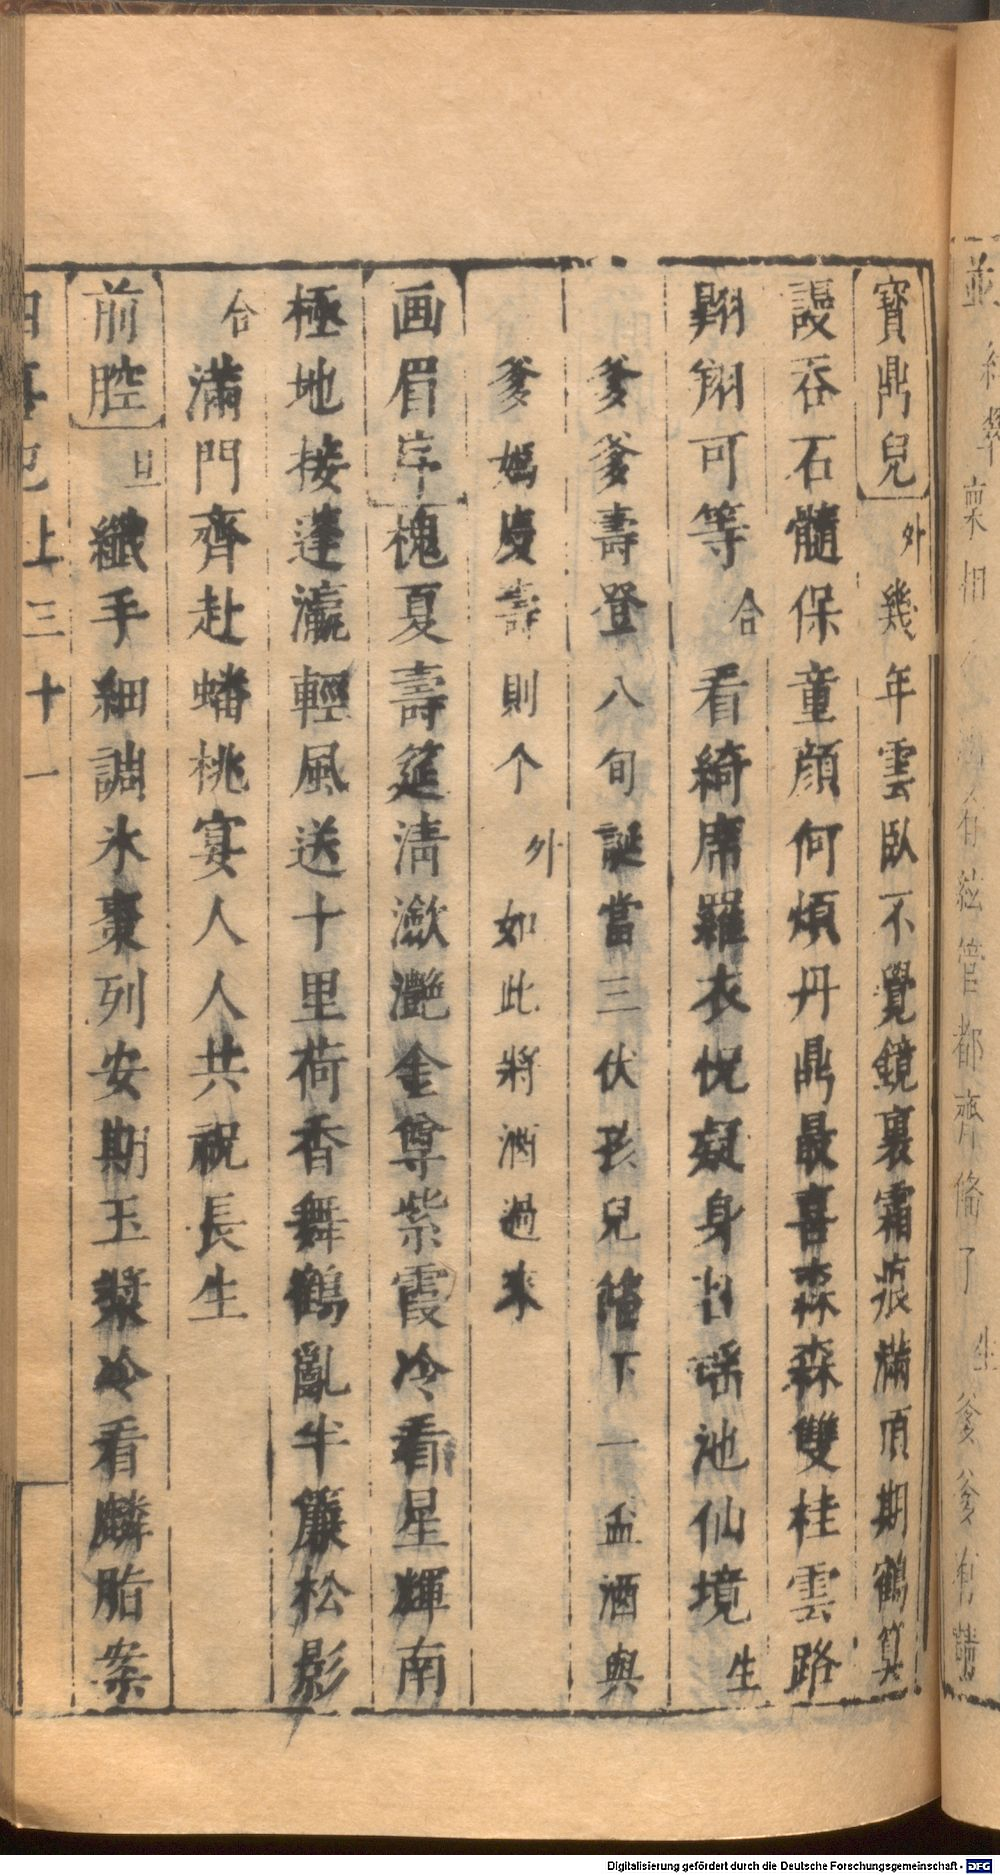 寶鼎兒 外 幾年雲臥不覺鏡裏霜痕滿頂期鶴筭
謾吞石髓保童顏何煩丹鼎最喜森森雙桂雲路
翱翔可等 合 看綺席羅衣恍疑身在瑤池仙境 生
爹爹壽登八旬誕當三伏孩兒備下一盃酒與
爹媽慶壽則个 外 如此將酒過來
画眉序 槐夏壽筵清瀲灔金尊紫霞冷看星輝南
極地接蓬瀛輕風送十里荷香舞鶴亂半簾松影
合 滿門齊赴蟠桃宴人人共祝長生
前腔 旦 纖手細調氷棗列安期玉漿冷看麟脂案
四喜記 上 三十一
Digitalisierung gefördert durch die Deutsche Forschungsgemeinschaft - DFG